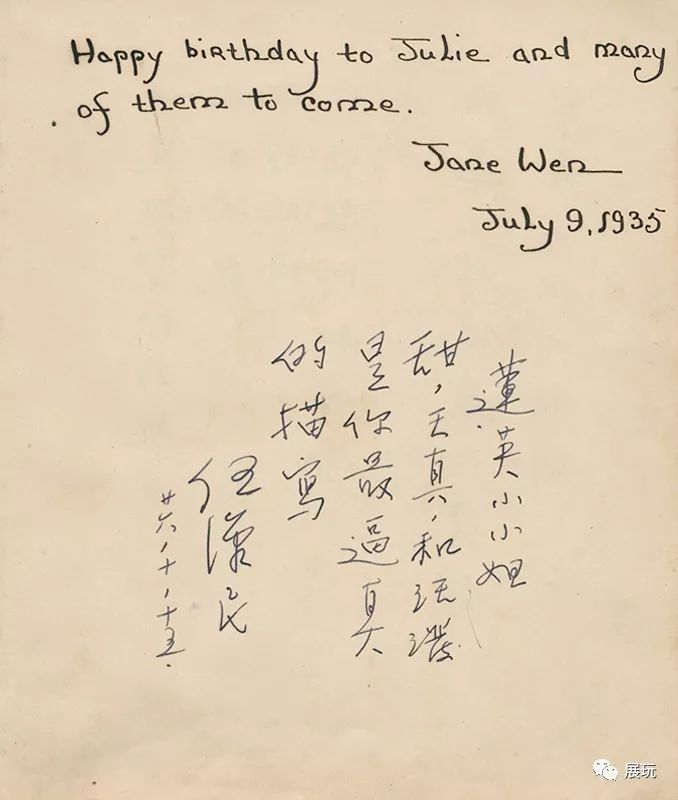 Happy birthday to Julie and many
of them to come.
Jane Wen
July 9, 1935
蓮英小小姐
甜,天真,和活潑
是你最逼真
的描寫
伍漢民
廿六、十、十五.
展玩